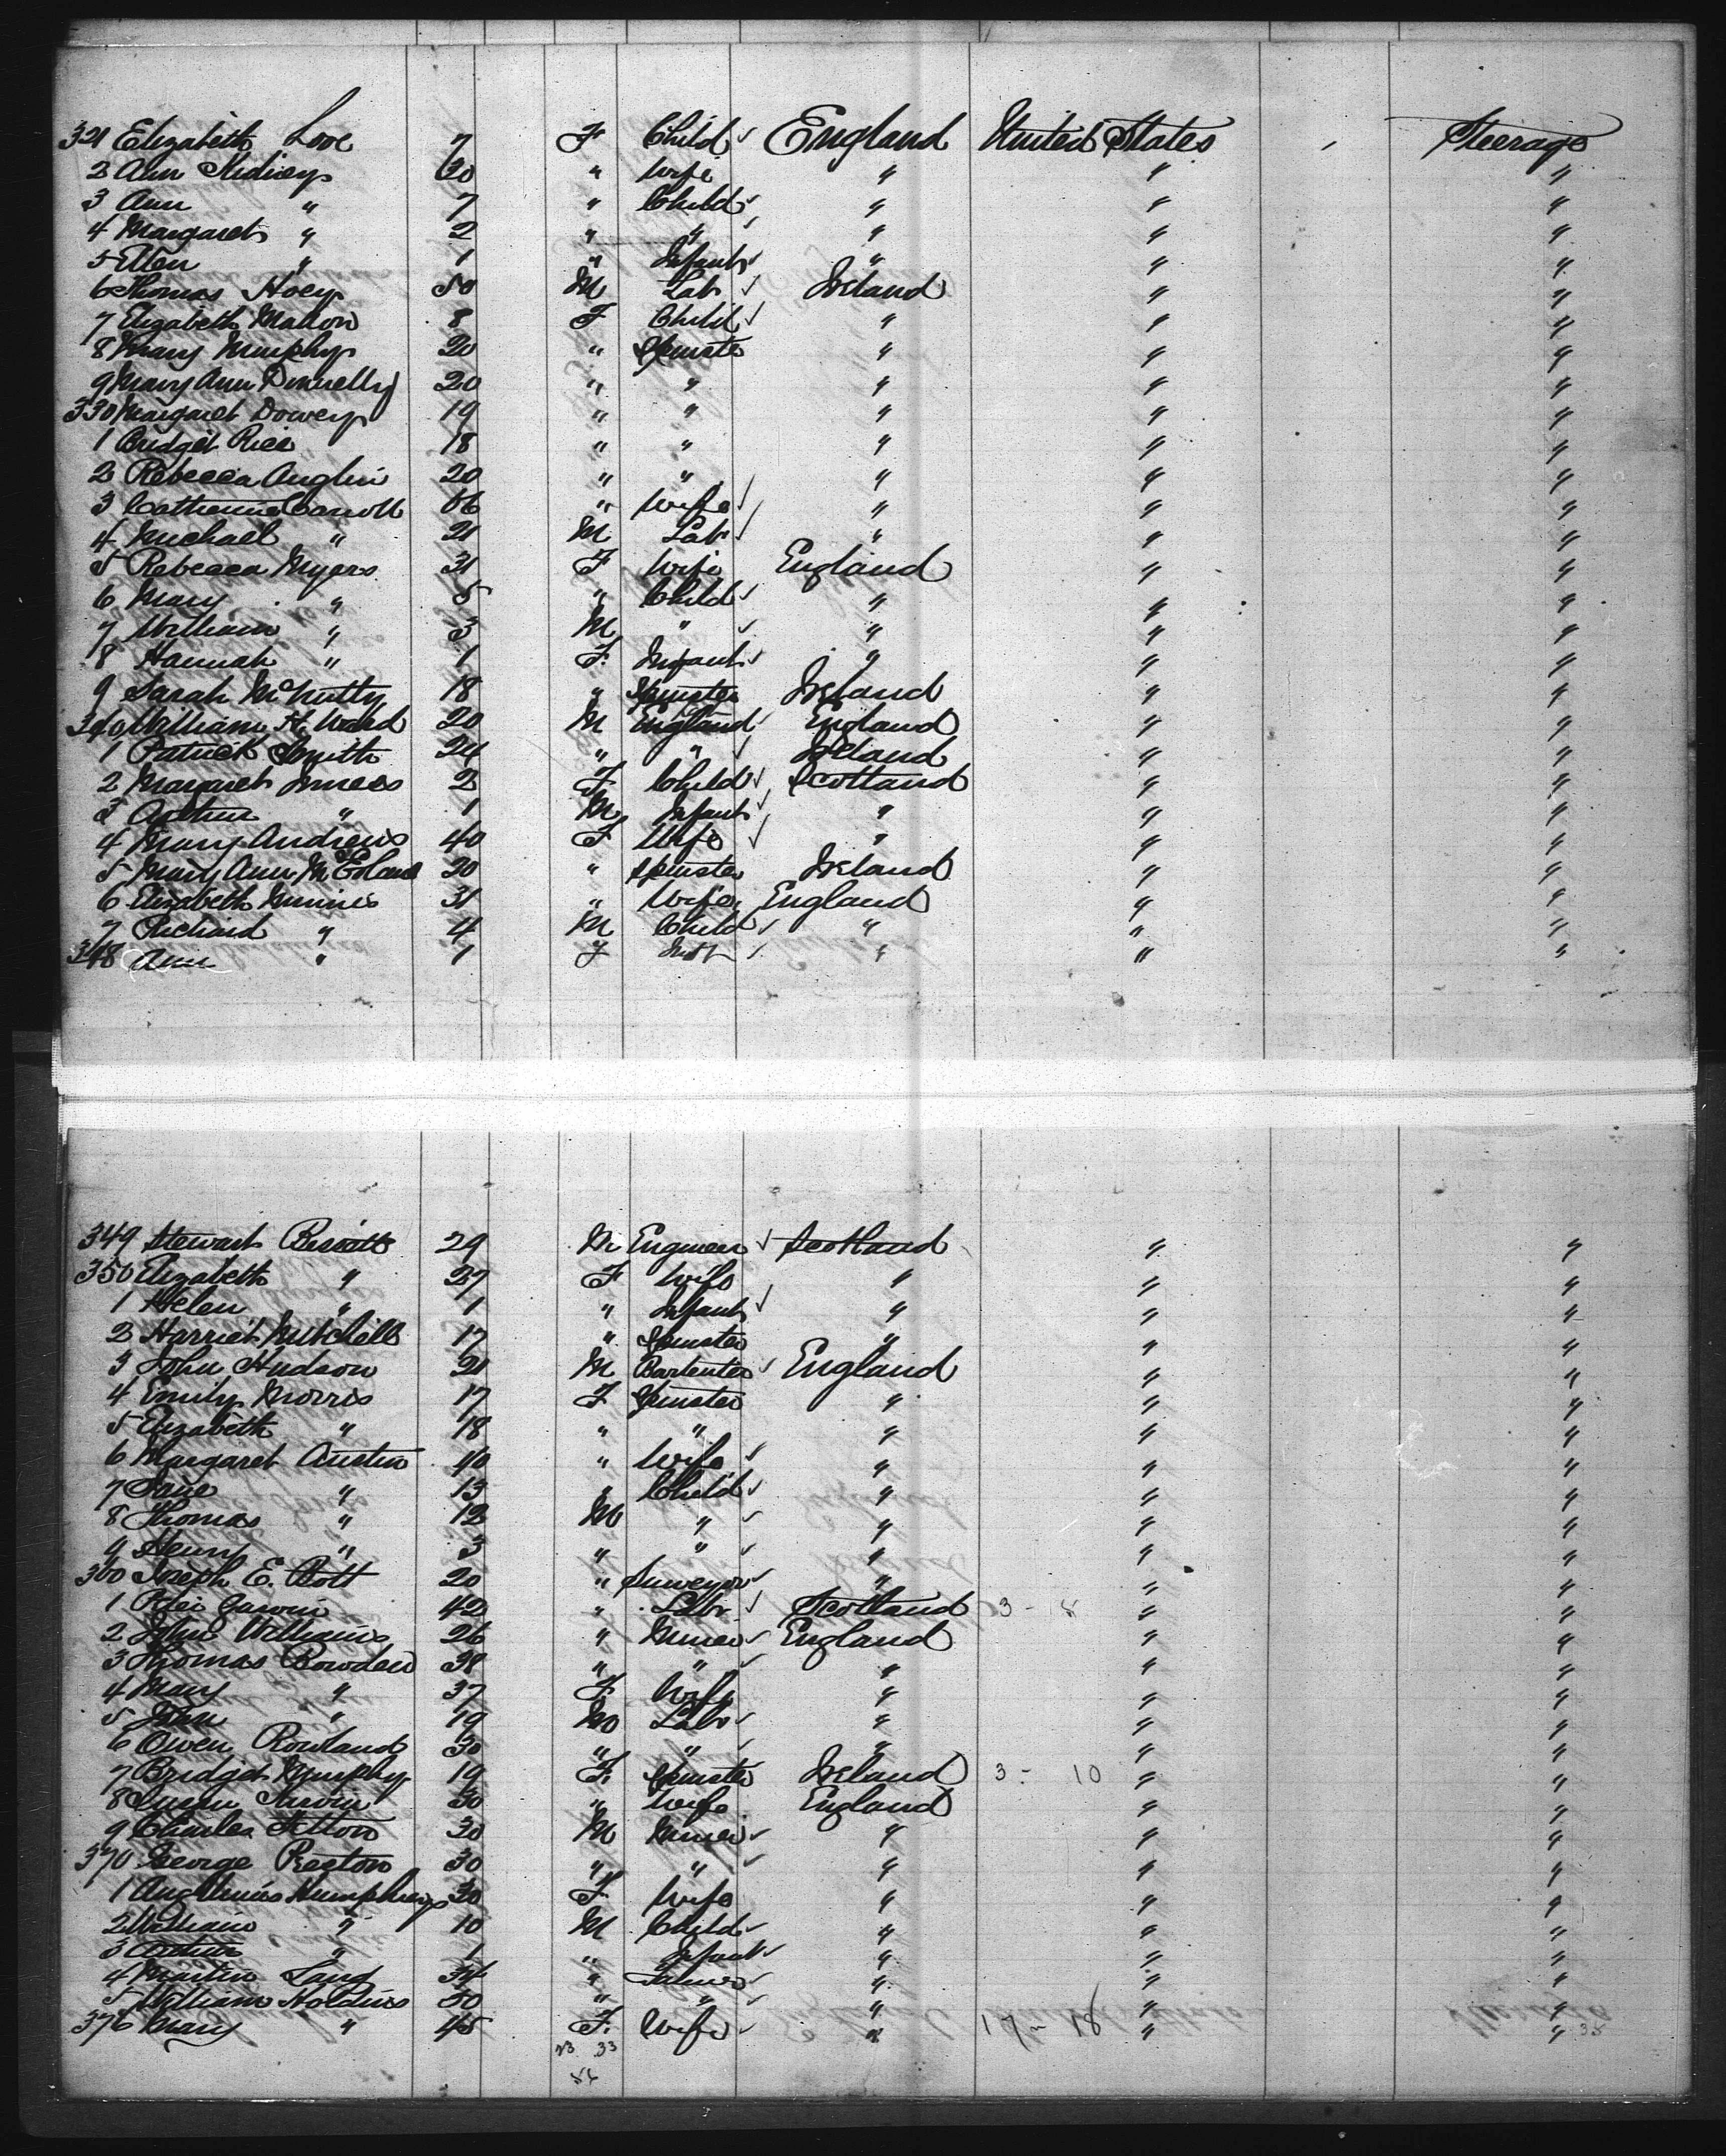 321 Elizabeth Love 7 F Child ✓ England United States Steerage
2 Ann 60 " Wife " " "
3 Ann " 7 " Child ✓ " " "
4 Margaret " 2 " " ✓ " " "
5 Ellen " 1 " Infant ✓ " " "
6 Thomas Hoey 50 M Lab ✓ Ireland " "
7 Elizabeth Mallon 8 F Child ✓ " " "
8 Mary Murphy 20 " Spinster " " "
9 Mary Ann Donnelly 20 " " " " "
330 Margaret Dowey 19 " " " " "
1 Bridget Rice 18 " " " " "
2 Rebecca Anglin 20 " " " " "
3 Catherine Carroll 56 " Wife ✓ " " "
4 Michael " 21 M Lab ✓ " " "
5 Rebecca Myers 31 F Wife England " "
6 Mary " 5 " Child ✓ " " "
7 William " 3 M " ✓ " " "
8 Hannah " 1 F Infant ✓ " " "
9 Sarah McNulty 18 " Spinster Ireland " "
340 William H. Ward 20 M England ✓ England " "
1 Patrick Smith 24 " " ✓ Ireland " "
2 Margaret Innes 2 F Child ✓ Scotland " "
3 Arthur " 1 M Infant ✓ " " "
4 Mary Andrews 40 F Wife ✓ " " "
5 Mary Ann 20 " Spinster Ireland " "
6 Elizabeth 31 " Wife England " "
7 Richard " 4 M Child ✓ " " "
348 Ann " 1 F Inft ✓ " " "
349 Stewart 29 M Engineer ✓ Scotland " "
350 Elizabeth " 27 F Wife " " "
1 Helen " 1 " Infant ✓ " " "
2 Harriet Mitchell 17 " Spinster " " "
3 John Hudson 21 M Bartender ✓ England " "
4 Emily Morris 17 F Spinster " " "
5 Elizabeth " 18 " " " " "
6 Margaret Austin 40 " Wife ✓ " " "
7 Jane " 13 " Child ✓ " " "
8 Thomas " 12 M " ✓ " " "
9 Henry " 3 " " ✓ " " "
360 Joseph E. Bott 20 " Surveyor ✓ " " "
1 42 " Labr ✓ Scotland 3 - 8 " "
2 John Williams 26 " Miner ✓ England " "
3 Thomas Bowden 38 " " ✓ " " "
4 Mary " 37 F Wife " " "
5 John " 19 M Labr ✓ " " "
6 Owen Rowland 30 " " ✓ " " "
7 Bridget Murphy 19 F Spinster Ireland 3 - 10 " "
8 Susan 30 " Wife England " "
9 Charles Fitton 30 M Miner ✓ " " "
370 George Preston 30 " " ✓ " " "
1 Humphreys 30 F Wife " " "
2 William " 10 M Child ✓ " " "
3 Arthur " 1 " Infant ✓ " " "
4 Martin Land 34 " Farmer ✓ " " "
5 William 50 " " ✓ " " "
376 Mary " 45 F Wife ✓ " 17 - 18 " "
23 33
56